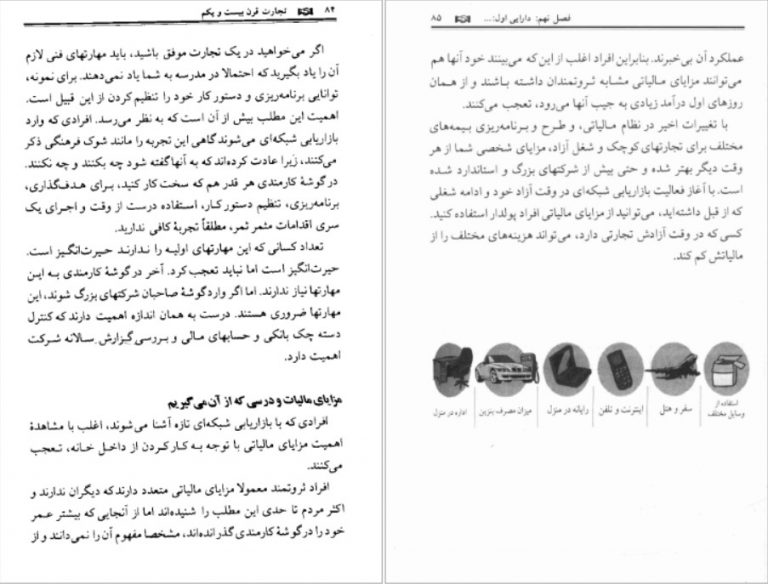 ۸۴ تجارت قرن بیست و یکم
اگر می‌خواهید در یک تجارت موفق باشید، باید مهارتهای فنی لازم
آن را یاد بگیرید که احتمالا در مدرسه به شما یاد نمی‌دهند. برای نمونه،
توانایی برنامه‌ریزی و دستور کار خود را تنظیم کردن از این قبیل است.
اهمیت این مطلب بیش از آن است که به نظر می‌رسد. افرادی که وارد
بازاریابی شبکه‌ای می‌شوند گاهی این تجربه را مانند شوک فرهنگی ذکر
می‌کنند، زیرا عادت کرده‌اند که به آنها گفته شود چه بکنند و چه نکنند.
در گوشهٔ کارمندی هر قدر هم که سخت کار کنید، برای هدف‌گذاری،
برنامه‌ریزی، تنظیم دستور کار، استفاده درست از وقت و اجرای یک
سری اقدامات مثمر ثمر، مطلقاً تجربهٔ کافی ندارید.
تعداد کسانی که این مهارتهای اولیه را ندارند حیرت‌انگیز است.
حیرت‌انگیز است اما نباید تعجب کرد. آخر در گوشهٔ کارمندی به این
مهارتها نیاز ندارند. اما اگر وارد گوشهٔ صاحبان شرکتهای بزرگ شوند، این
مهارتها ضروری هستند. درست به همان اندازه اهمیت دارند که کنترل
دسته چک بانکی و حسابهای مالی و بررسی گزارش سالانه شرکت
اهمیت دارد.
مزایای مالیات و درسی که از آن می‌گیریم
افرادی که با بازاریابی شبکه‌ای تازه آشنا می‌شوند، اغلب با مشاهدهٔ
اهمیت مزایای مالیاتی با توجه به کار کردن از داخل خانه، تعجب
می‌کنند.
افراد ثروتمند معمولا مزایای مالیاتی متعدد دارند که دیگران ندارند و
اکثر مردم تا حدی این مطلب را شنیده‌اند اما از آنجایی که بیشتر عمر
خود را در گوشهٔ کارمندی گذرانده‌اند، مشخصا مفهوم آن را نمی‌دانند و از
فصل نهم: دارایی اول: ... ۸۵
عملکرد آن بی‌خبرند. بنابراین افراد اغلب از این که می‌بینند خود آنها هم
می‌توانند مزایای مالیاتی مشابه ثروتمندان داشته باشند و از همان
روزهای اول درآمد زیادی به جیب آنها می‌رود، تعجب می‌کنند.
با تغییرات اخیر در نظام مالیاتی، و طرح و برنامه‌ریزی بیمه‌های
مختلف برای تجارتهای کوچک و شغل آزاد، مزایای شخصی شما از هر
وقت دیگر بهتر شده و حتی بیش از شرکتهای بزرگ و استاندارد شده
است. با آغاز فعالیت بازاریابی شبکه‌ای در وقت آزاد خود و ادامه شغلی
که از قبل داشته‌اید، می‌توانید از مزایای مالیاتی افراد پولدار استفاده کنید.
کسی که در وقت آزادش تجارتی دارد، می‌تواند هزینه‌های مختلف را از
مالیاتش کم کند.
استفاده از
وسایل مختلف
سفر و هتل
اینترنت و تلفن
رایانه در منزل
میزان مصرف بنزین
اداره در منزل